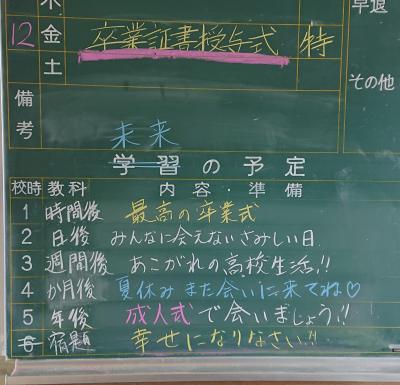 木
早退
12 金 卒業証書授与式 特
土
その他
備考
未来
学習の予定
校時 教科 内容・準備
1 時間後 最高の卒業式
2 日後 みんなに会えないさみしい日
3 週間後 あこがれの高校生活!!
4 か月後 夏休みまた会いに来てね♡
5 年後 成人式で会いましょう!!
6 宿題 幸せになりなさい!!